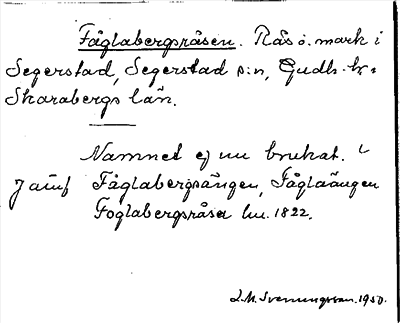 Fåglabergsråsen. Rås o. mark i
Segerstad, Segerstad s:n, Gudh. hr i
Skarabergs län.
Namnet ej nu brukat.
Jämf Fåglabergsängen, Fåglaängen
Foglabergsråsa lm. 1822.
L.M. Svenungsson. 1950.